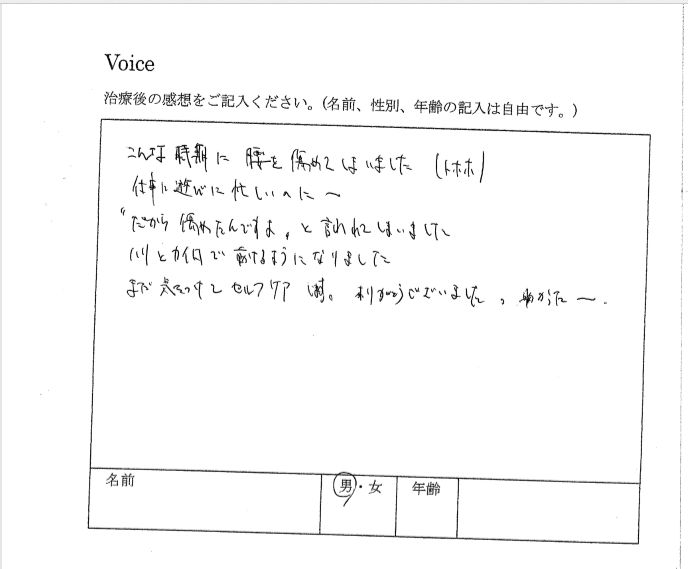 Voice
治療後の感想をご記入ください。(名前、性別、年齢の記入は自由です。)
こんな時期に 腰を傷めてしまいました (トホホ)
仕事に遊びに忙しいのに〜
"だから傷めたんですよ" と言われてしまいました
ハリとカイロで動けるようになりました
まだ気をつけて セルフケア します。ありがとうございました。助かった〜.
名前
男・女
年齢